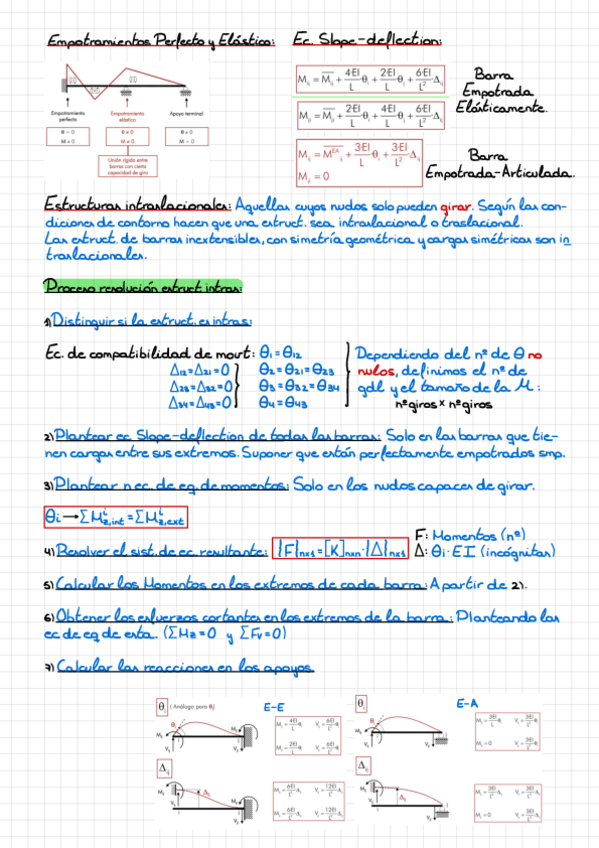 Empotramientos Perfecto y Elástico:
Ec. Slope-deflection:
Empotramiento perfecto
θ = 0
M ≠ 0
Empotramiento elástico
θ ≠ 0
M ≠ 0
Apoyo terminal
θ ≠ 0
M = 0
Unión rígida entre barras con cierta capacidad de giro
M_ij = M̅_ij + 4EI/L θ_i + 2EI/L θ_j + 6EI/L² Δ_ij
M_ji = M̅_ji + 2EI/L θ_i + 4EI/L θ_j + 6EI/L² Δ_ij
Barra
Empotrada
Elásticamente.
M_ij = M̅_ij^EA + 3EI/L θ_i + 3EI/L² Δ_ij
M_ji = 0
Barra
Empotrada-Articulada.
Estructuras intraslacionales: Aquellas cuyos nudos solo pueden girar. Según las con-
diciones de contorno hacen que una estruct. sea intraslacional o traslacional.
Las estruct. de barras inextensibles, con simetría geométrica y cargas simétricas son in
traslacionales.
Proceso resolución estruct intras:
1) Distinguir si la estruct. es intras:
Ec. de compatibilidad de movt: θ1 = θ12
Δ12=Δ21=0 θ2 = θ21=θ23
Δ23=Δ32=0 θ3 = θ32=θ34
Δ34=Δ43=0 θ4 = θ43
Dependiendo del nº de θ no
nulos, definimos el nº de
gdl y el tamaño de la M:
nºgiros x nºgiros
2) Plantear ec. Slope-deflection de todas las barras: Solo en las barras que tie-
nen cargas entre sus extremos. Suponer que están perfectamente empotrados smp.
3) Plantear n ec. de eq. de momentos: Solo en los nudos capaces de girar.
θi → ΣM^i z,int = ΣM^i z,ext
4) Resolver el sist. de ec. resultante: {F}nx1=[K]nxn·{Δ}nx1
F: Momentos (nº)
Δ: θi·EI (incógnitas)
5) Calcular los Momentos en los extremos de cada barra: A partir de 2).
6) Obtener los esfuerzos cortantes en los extremos de la barra: Planteando las
ec de eq de esta. (ΣMz=0 y ΣFv=0)
7) Calcular las reacciones en los apoyos.
θ_i (Análogo para θj)
E-E
θ_i
E-A
Δ_ij
Δ_ij